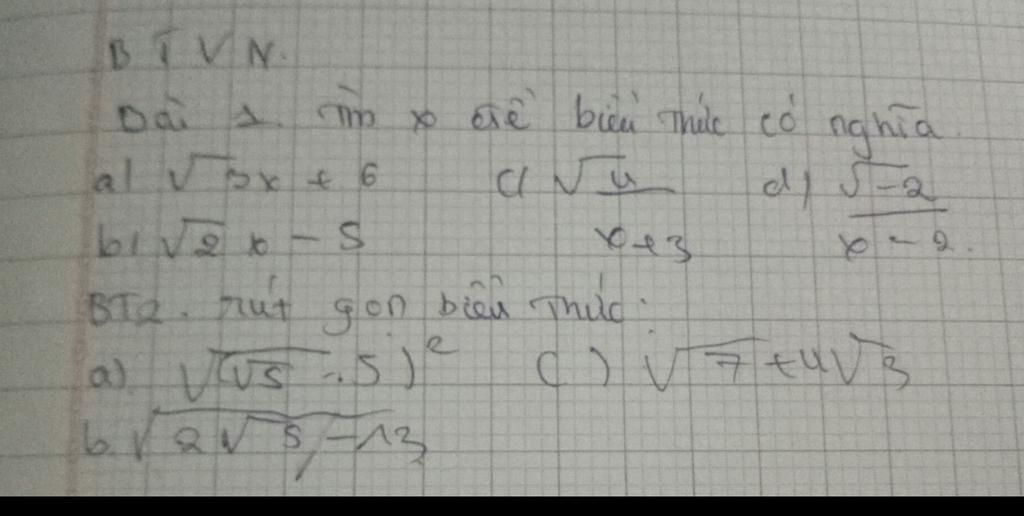 BTVN.
Bài 1. Tìm x để biểu thức có nghĩa.
a) √3x + 6 c) √4/x+3 d) √-2/x-2.
b) √2x - 5
BT2. rút gọn biểu thức:
a). √(√5 - 5)² c) √7+4√3
b. √2√5-13